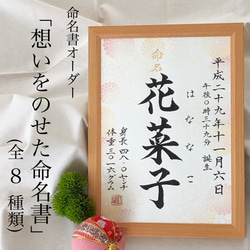 命名書オーダー
「想いをのせた命名書」
(全8種類)
平成二十九年十一月六日
午後〇時三十九分 誕生
命名
花菜子
はなこ
身長 四八・〇センチ
体重 三〇一六グラム